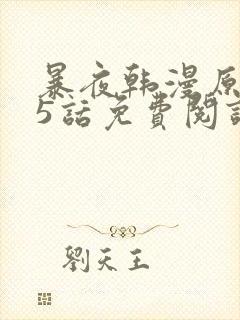 暴夜韩漫原
5話免費閱讀
劉天王